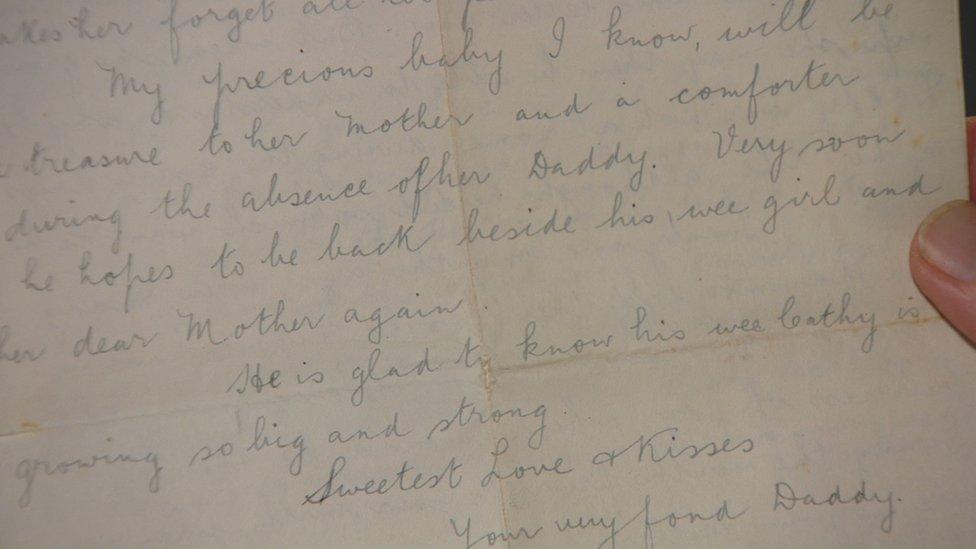 her forget all
My precious baby I know, will be
treasure to her Mother and a comforter
during the absence of her Daddy. Very soon
he hopes to be back beside his wee girl and
her dear Mother again.
He is glad to know his wee Cathy is
growing so big and strong.
Sweetest Love & Kisses
Your very fond Daddy.